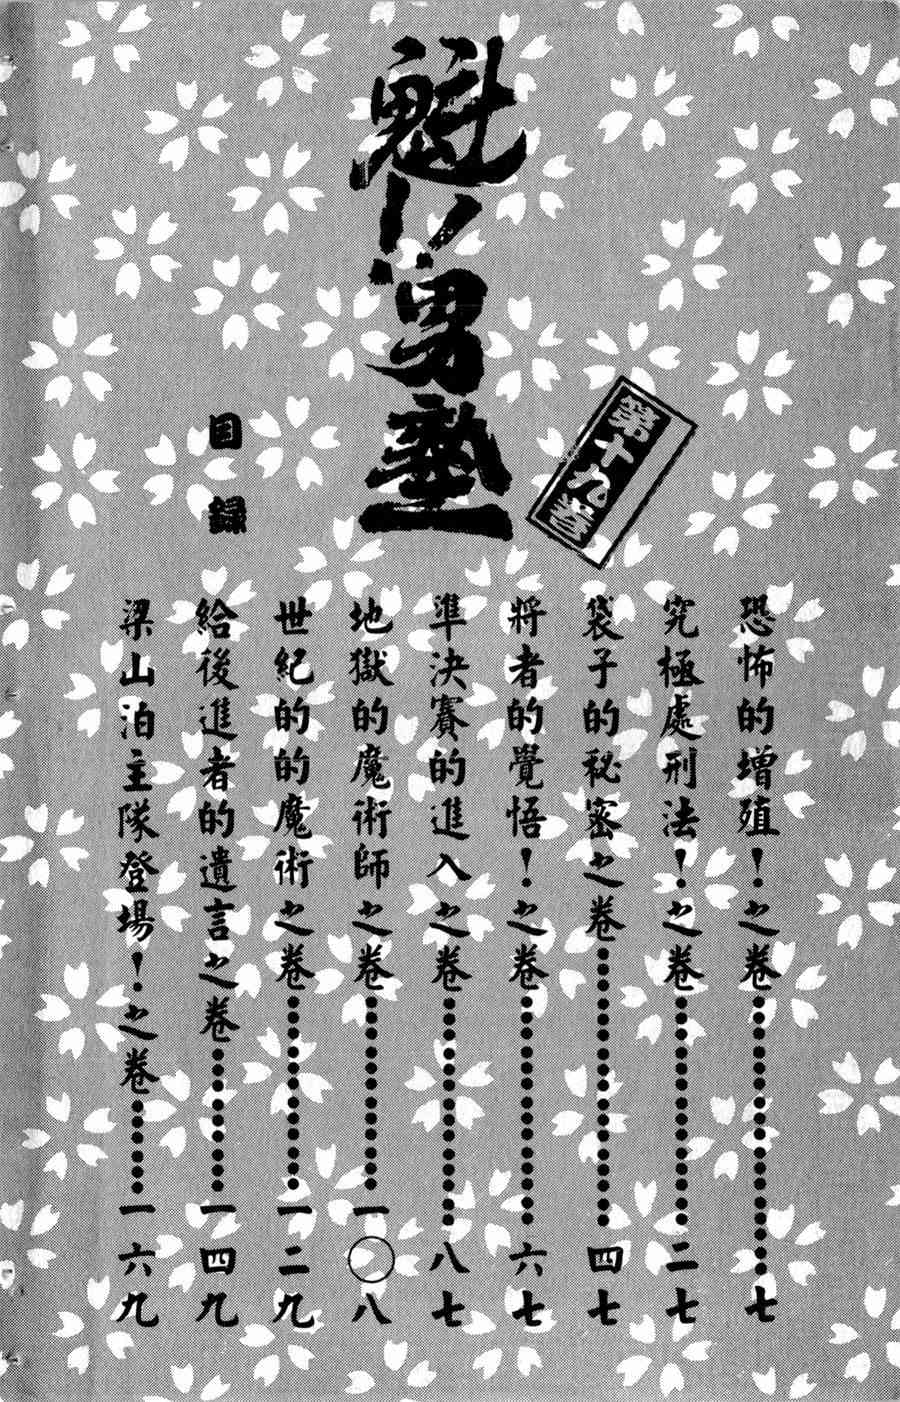 魁!!男塾
第十九卷
目録
恐怖的增殖！之卷…………七
究極處刑法！之卷…………二七
袋子的秘密之卷…………四七
將者的覺悟！之卷…………六七
準決賽的進入之卷…………八七
地獄的魔術師之卷…………一〇八
世紀的的魔術之卷…………一二九
給後進者的遺言之卷…………一四九
梁山泊主隊登場！之卷…………一六九